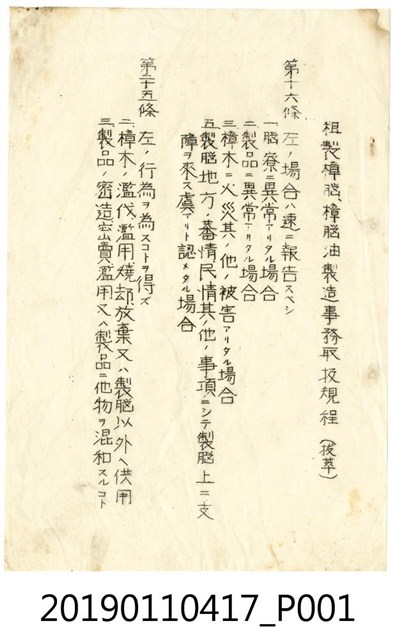 粗製樟脳、樟脳油製造事務取扱規程（抜萃）
第十六條 左ノ場合ハ速ニ報告スベシ
一、脳寮ニ異常アリタル場合
二、製品ニ異常アリタル場合
三、樟木ニ火災其ノ他ノ被害アリタル場合
五、製脳地方ノ蕃情民情其ノ他ノ事項ニシテ製脳上ニ支
障ヲ来ス虞アリト認メタル場合
第三十五條 左ノ行為ヲ為スコトヲ得ズ
二、樟木ノ濫伐濫用焼却放棄又ハ製脳以外ヘ供用
三、製品ノ密造密賣濫用又ハ製品ニ他物ヲ混和スルコト
20190110417_P001